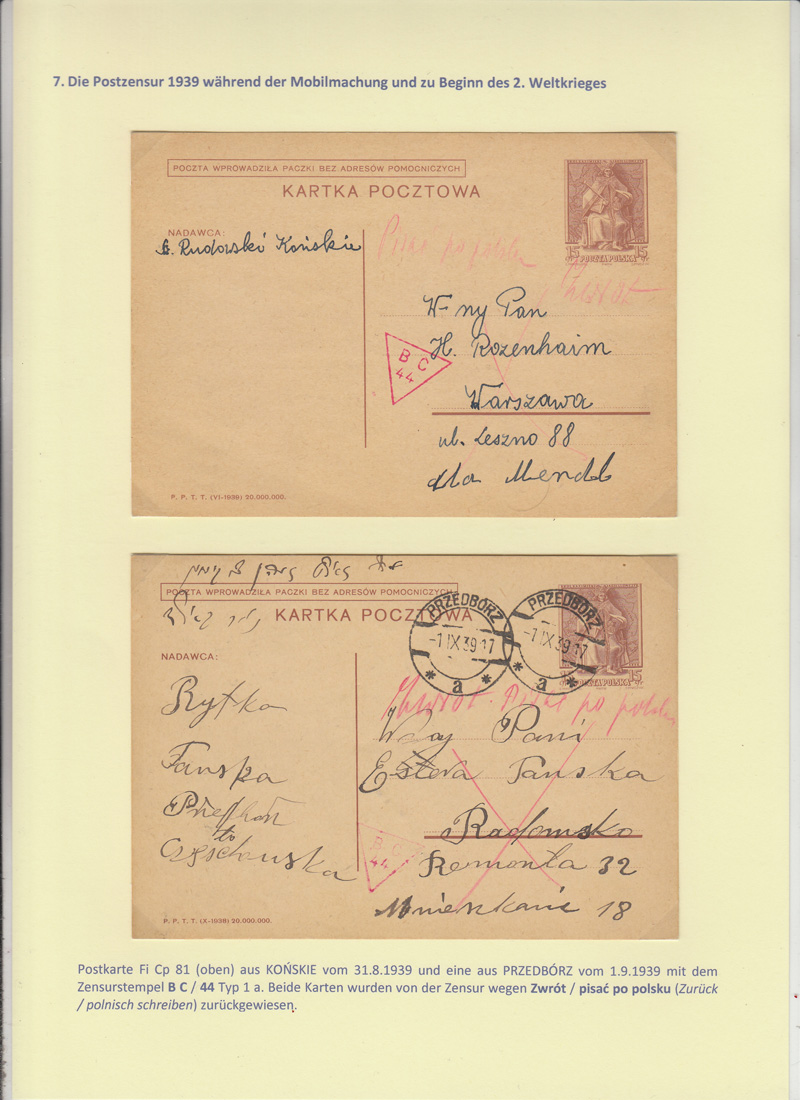 7. Die Postzensur 1939 während der Mobilmachung und zu Beginn des 2. Weltkrieges
POCZTA WPROWADZIŁA PACZKI BEZ ADRESÓW POMOCNICZYCH
KARTKA POCZTOWA
NADAWCA:
Rudowski Końskie
Pisać po polsku
Zwrot
15 POCZTA POLSKA 15
W-ny Pan
H. Rozenhaim
Warszawa
ul. Leszno 88
dla Mendl
B C
44
P. P. T. T. (VI-1939) 20.000.000.
POCZTA WPROWADZIŁA PACZKI BEZ ADRESÓW POMOCNICZYCH
KARTKA POCZTOWA
PRZEDBÓRZ
-1 IX 39 17
* a *
PRZEDBÓRZ
-1 IX 39 17
* a *
POCZTA POLSKA 15
NADAWCA:
Zwrot. Pisać po polsku
Rytka
Tanska
Częstohuska
Pani
Estera Tanska
Radomsko
Remonta 32
Mnieszkanie 18
B C
44
P. P. T. T. (X-1938) 20.000.000.
Postkarte Fi Cp 81 (oben) aus KOŃSKIE vom 31.8.1939 und eine aus PRZEDBÓRZ vom 1.9.1939 mit dem
Zensurstempel B C / 44 Typ 1 a. Beide Karten wurden von der Zensur wegen Zwrót / pisać po polsku (Zurück
/ polnisch schreiben) zurückgewiesen.